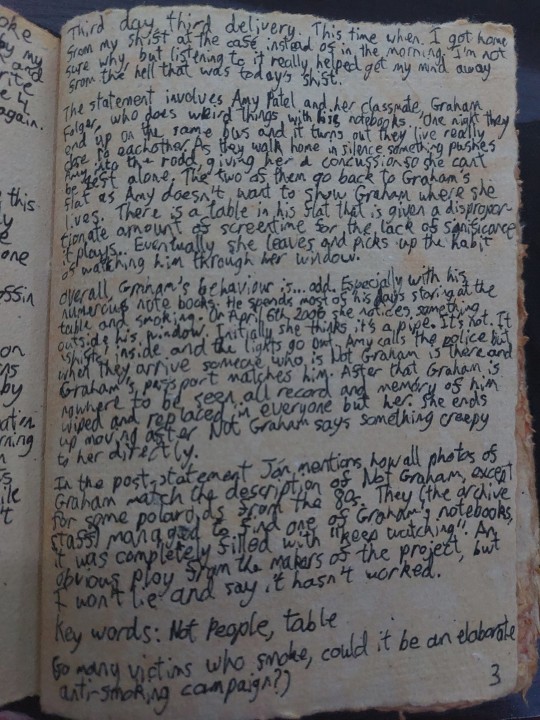 oke
by my
e and
rite
e 4
again.
this
ly
one
ossin
on
ns
by
rning
s
ile
't
Third day third delivery. This time when I got home
from my shift at the case instead of in the morning. I'm not
sure why, but listening to it really helped get my mind away
from the hell that was today's shift.
The statement involves Amy Patel and her classmate, Graham
Folger, who does weird things with his notebooks. One night they
end up on the same bus and it turns out they live really
close to eachother. As they walk home in silence something pushes
Amy into the road, giving her a concussion so she cant
be left alone. The two of them go back to Graham's
flat as Amy doesn't want to show Graham where she
lives. There is a table in his flat that is given a dispropor-
tionate amount of screentime for the lack of significance
it plays.. Eventually she leaves and picks up the habit
of watching him through her window.
Overall, Graham's behaviour is... odd. Especially with his
numerous note books. He spends most of his days staring at the
table and smoking. On April 6th 2006 she notices something
outside his window. Initially she thinks it's a pipe. It's not. It
shifts inside and the lights go out. Amy calls the police but
when they arrive someone who is Not Graham is there and
Graham's passport matches him. After that Graham is
nowhere to be seen, all record and memory of him
wiped and replaced in everyone but her. She ends
up moving after Not Graham says something creepy
to her directly.
In the post-statement Jon mentions how all photos of
Graham match the description of Not Graham, except
for some polaroids from the 80s. They (the archive
staff) managed to find one of Graham's notebooks,
it was completely filled with "keep watching". An
obvious ploy from the makers of the project, but
I won't lie and say it hasn't worked.
Key words: Not People, table
(So many victims who smoke, could it be an elaborate
anti-smoking campaign?)
3